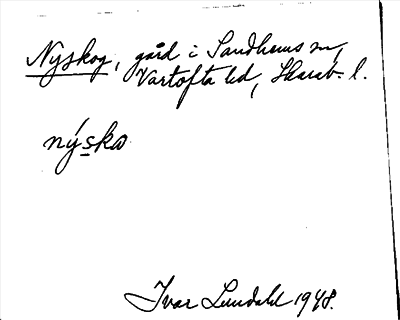 Nyskog, gård i Sandhems sn,
Vartofta hd, Skarab. l.
nýska
Ivar Lundahl 1948.